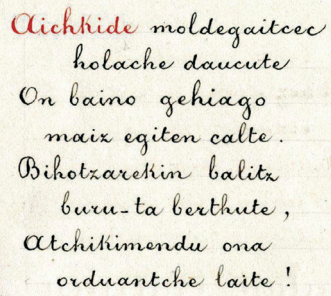 Aichkide moldegaitcec
holache daucute
On baino gehiago
maiz egiten calte.
Bihotzarekin balitz
buru-ta berthute,
Atchikimendu ona
orduantche laite!